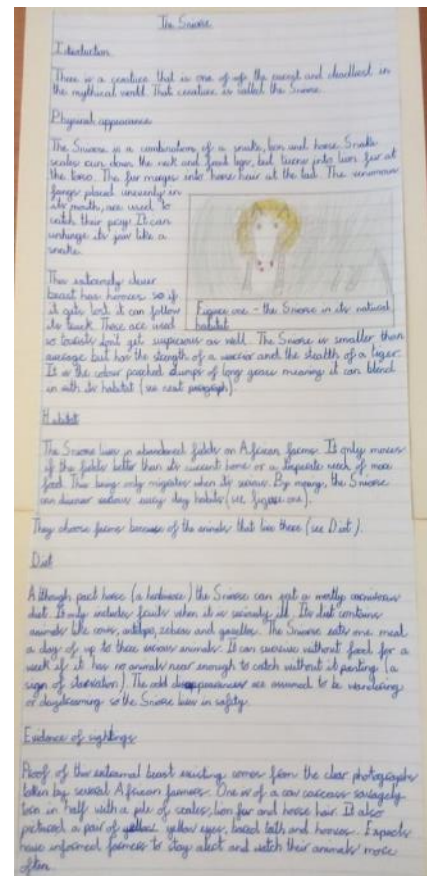 The Sniorse
Introduction
There is a creature that is one of the rarest and deadliest in
the mythical world. That creature is called the Sniorse.
Physical appearance
The Sniorse is a combination of a snake, lion and horse. Snake
scales run down the neck and front legs, but turns into lion fur at
the torso. The fur merges into horse hair at the tail. The venomous
fangs placed unevenly in
its mouth, are used to
catch their prey. It can
unhinge its jaw like a
snake.
This extremely clever
beast has hooves so if
it gets lost it can follow
its track. These are used
Figure one - the Sniorse in its natural
habitat
so tourists don't get suspicious as well. The Sniorse is smaller than
average but has the strength of a warrior and the stealth of a tiger.
It is the colour parched clumps of long grass meaning it can blend
in with its habitat (see next paragraph).
Habitat
The Sniorse lives in abandoned fields on African farms. It only moves
if the fields better than its current home or a desperate need of more
food. This being only migrates when its serious. By moving, the Sniorse
can discover various every day habits (see figure one).
They choose farms because of the animals that live there (see Diet).
Diet
Although part horse (a herbivore) the Sniorse can eat a mostly carnivorous
diet. It only includes fruits when it is seriously ill. Its diet contains
animals like cows, antelope, zebras and gazelles. The Sniorse eats one meal
a day of up to three various animals. It can survive without food for a
week if it has no animals near enough to catch without it panting (a
sign of starvation). The odd disappearances are assumed to be wandering
or daydreaming so the Sniorse lives in safety.
Evidence of sightings
Proof of this external beast existing comes from the clear photographs
taken by several African farmers. One is of a cow carcass savagely
torn in half with a pile of scales, lion fur and horse hair. It also
pictured a pair of yellow eyes, bared teeth and hooves. Experts
have informed farmers to stay alert and watch their animals more
often.